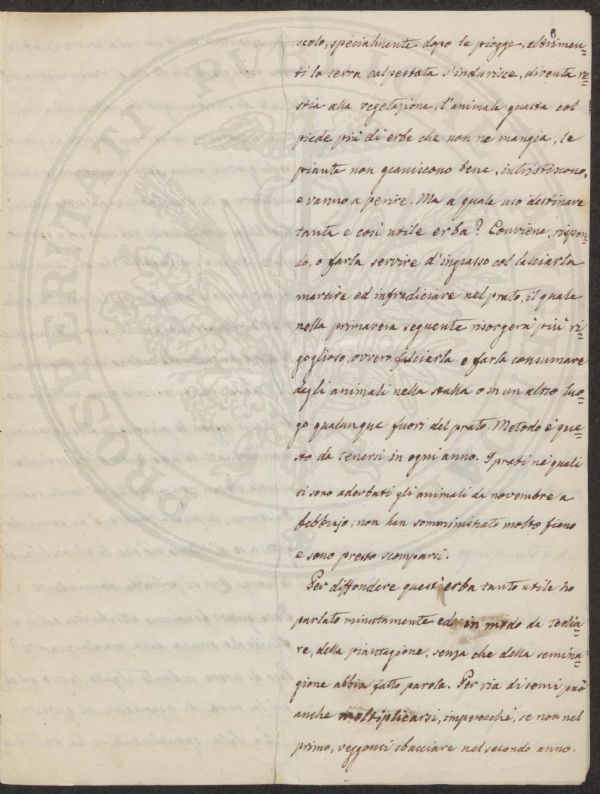 6
scolo, specialmente dopo le piogge, altrimen=
ti la terra calpestata s'indurisce, diventa re=
stia alla vegetazione, l'animale guasta col
piede più di erbe che non ne mangia, le
piante non graniscono bene, intristiscono,
e vanno a perire. Ma a quale uso destinare
tanta e così utile erba? Conviene, rispon=
do, o farla servire d'ingrasso col lasciarla
marcire ed infradiciare nel prato, il quale
nella primavera seguente risorgerà più ri=
goglioso, ovvero falciarla e farla consumare
dagli animali nella stalla o in un altro luo=
go qualunque fuori del prato. Metodo è que=
sto da tenersi in ogni anno. I prati ne' quali
si sono aderbati gli animali da novembre a
febbrajo, non han somministrato molto fieno
e sono presto scomparsi.
Per diffondere quest'erba tanto utile ho
parlato minutamente ed in modo da tedia=
re, della piantagione, senza che della semina=
gione abbia fatto parola. Per via di semi può
anche moltiplicarsi, imperocchè, se non nel
primo, veggonsi sbucciare nel secondo anno.
PROSPERITATI PUBLICAE